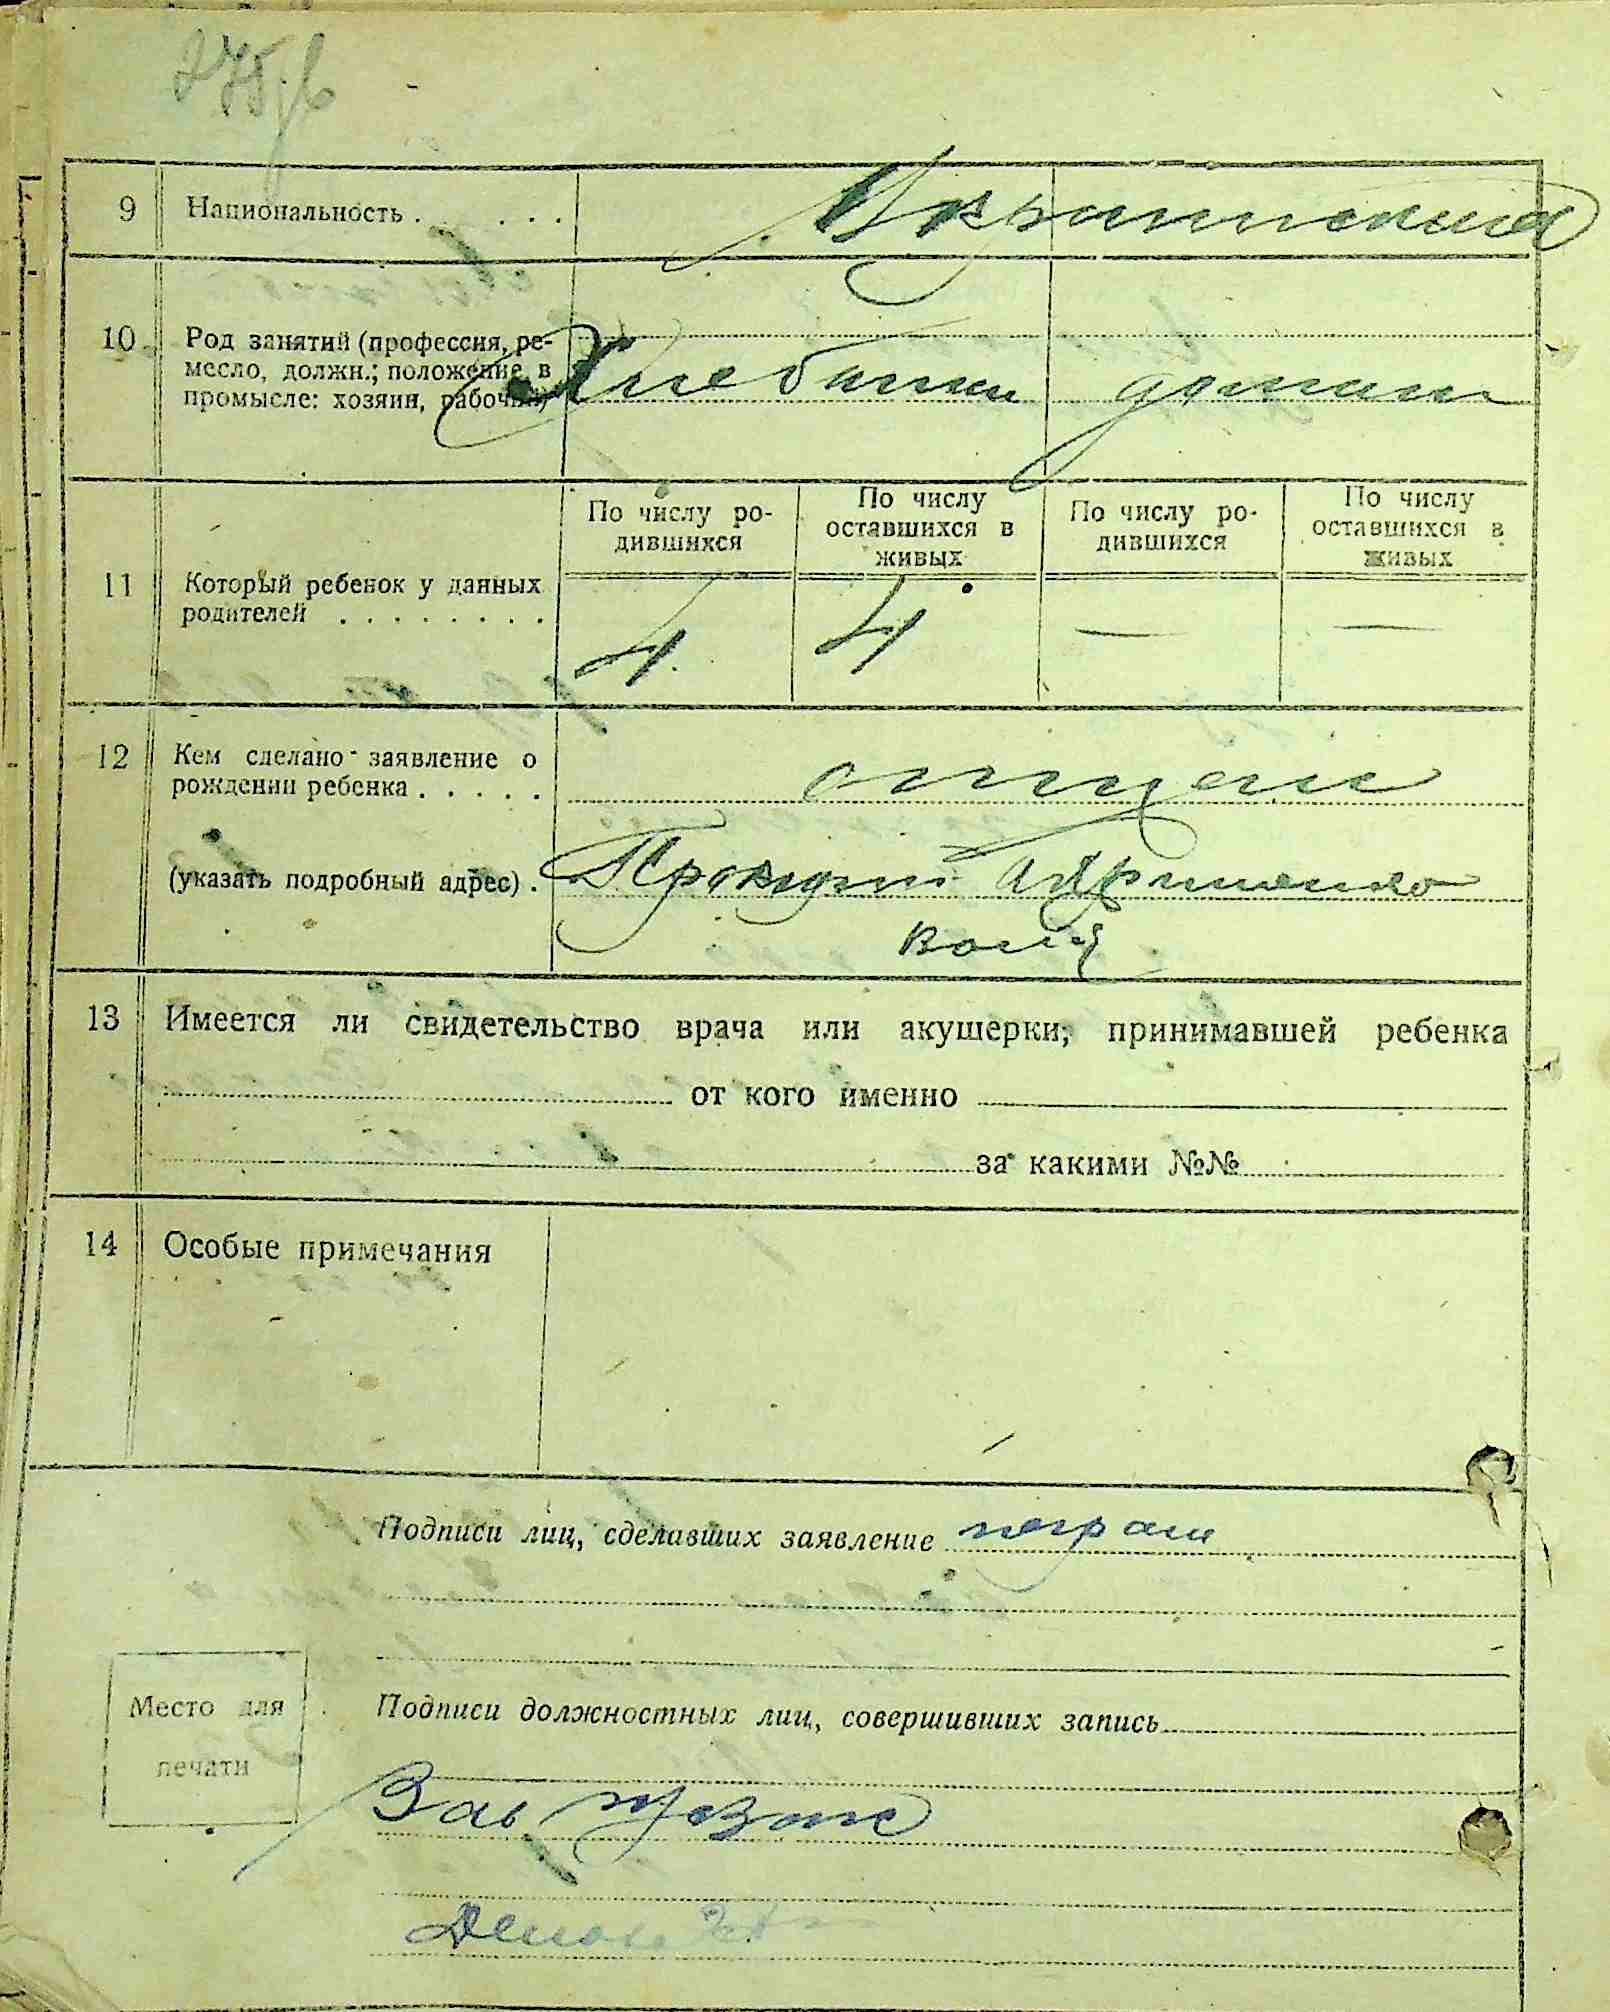 9 Национальность . . . . Украинская
10 Род занятий (профессия, ре-
месло, должн.; положение в
промысле: хозяин, рабочий)
По числу ро-
дившихся
По числу
оставшихся в
живых
По числу ро-
дившихся
По числу
оставшихся в
живых
11 Который ребенок у данных
родителей . . . . . . . . 4. 4 — —
12 Кем сделано заявление о
рождении ребенка . . . . . отцем
(указать подробный адрес) .
13 Имеется ли свидетельство врача или акушерки, принимавшей ребенка
от кого именно
за какими №№
14 Особые примечания
Подписи лиц, сделавших заявление
Место для
печати
Подписи должностных лиц, совершивших запись
Зав